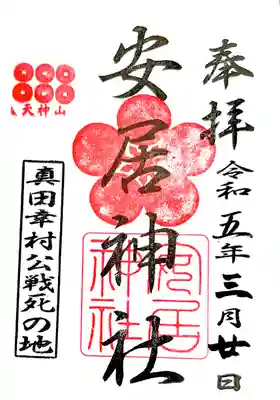 奉拝
令和五年三月廿日
安居神社
安居神社
天神山
真田幸村公戦死の地